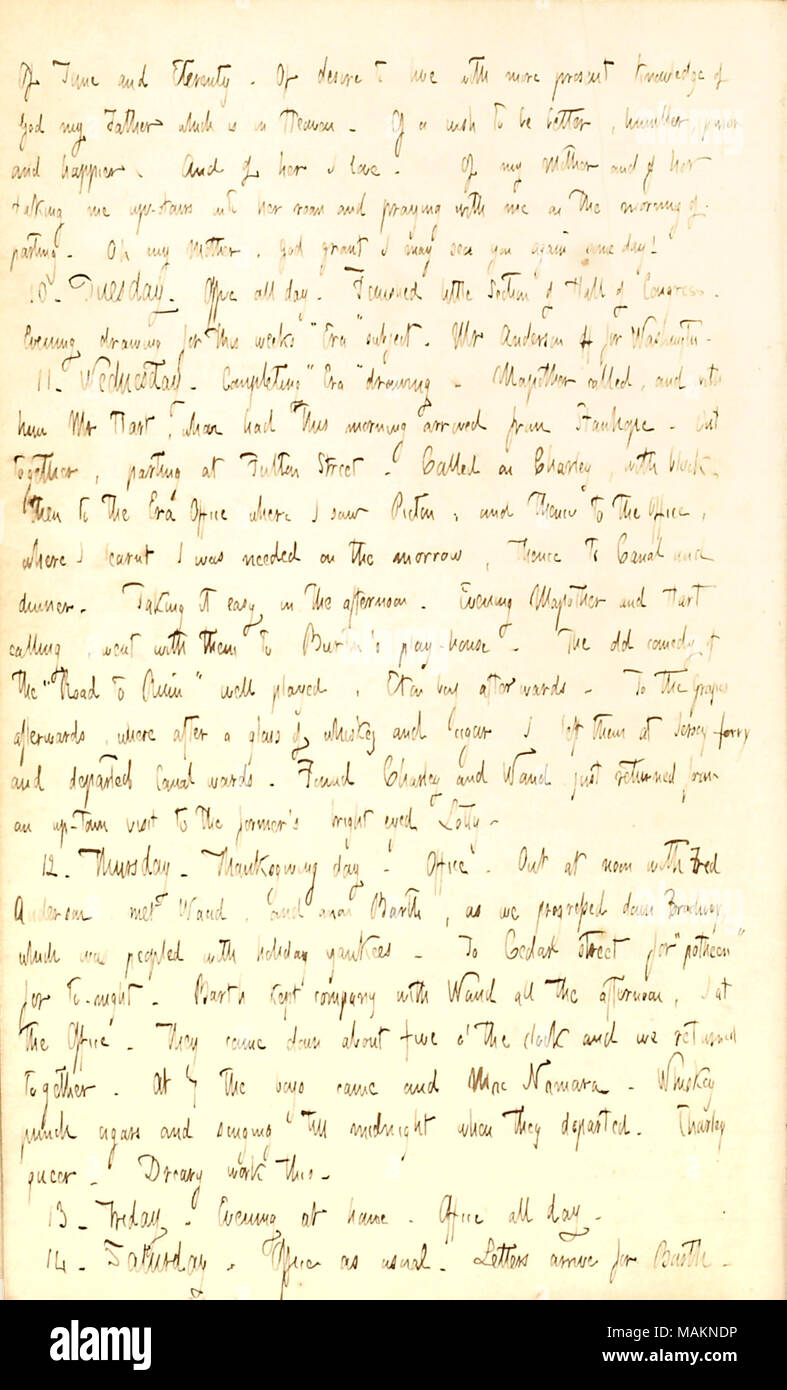 Of Time and Eternity. Of desire to live with more present knowledge of
God my Father which is in Heaven. Of a wish to be better, humbler, purer
and happier. And of her I love. Of my Mother and of her
taking me up-stairs into her room and praying with me on the morning of
parting. Oh my Mother, God grant I may see you again some day!
10. Tuesday. Office all day. Finished little Section of Hall of Congress.
Evening drawing for this weeks "Era" subject. Mr Anderson off for Washington.
11. Wednesday. Completing "Era" drawing. Mapother called, and with
him Mr Hart, whom had this morning arrived from Stanhope. Out
together, parting at Fulton Street. Called on Charley, with block.
then to the Era Office where I saw Picton, and thence to the Office,
where I learnt I was needed on the morrow, thence to Canal and
dinner. Taking it easy in the afternoon. Evening Mapother and Hart
calling, went with them to Burton's play-house. The old comedy of
the "Road to Ruin" well played, Eton boy afterwards. To the Grapes
afterwards, where after a glass of whiskey and cigar I left them at Jersey ferry
and departed Canal wards. Found Charley and Waud just returned from
an up-town visit to the former's bright eyed Lotty.
12. Thursday. Thanksgiving day. Office. Out at noon with Fred
Anderson met Waud, and anon Barth, as we progressed down Broadway,
which was peopled with holiday yankees. To Cedar street for "potheen"
for to-night. Barth kept company with Waud all the afternoon, I at
the Office. They came down about five o' the clock and we returned
together. At 7 the boys came and Mac Namara. Whiskey
punch cigars and singing till midnight when they departed. Charley
queer. Dreary work this.
13. Friday. Evening at home. Office all day.
14. Saturday. Office as usual. Letters arrive for Barth.
alamy
Image ID: MAKNDP
www.alamy.com